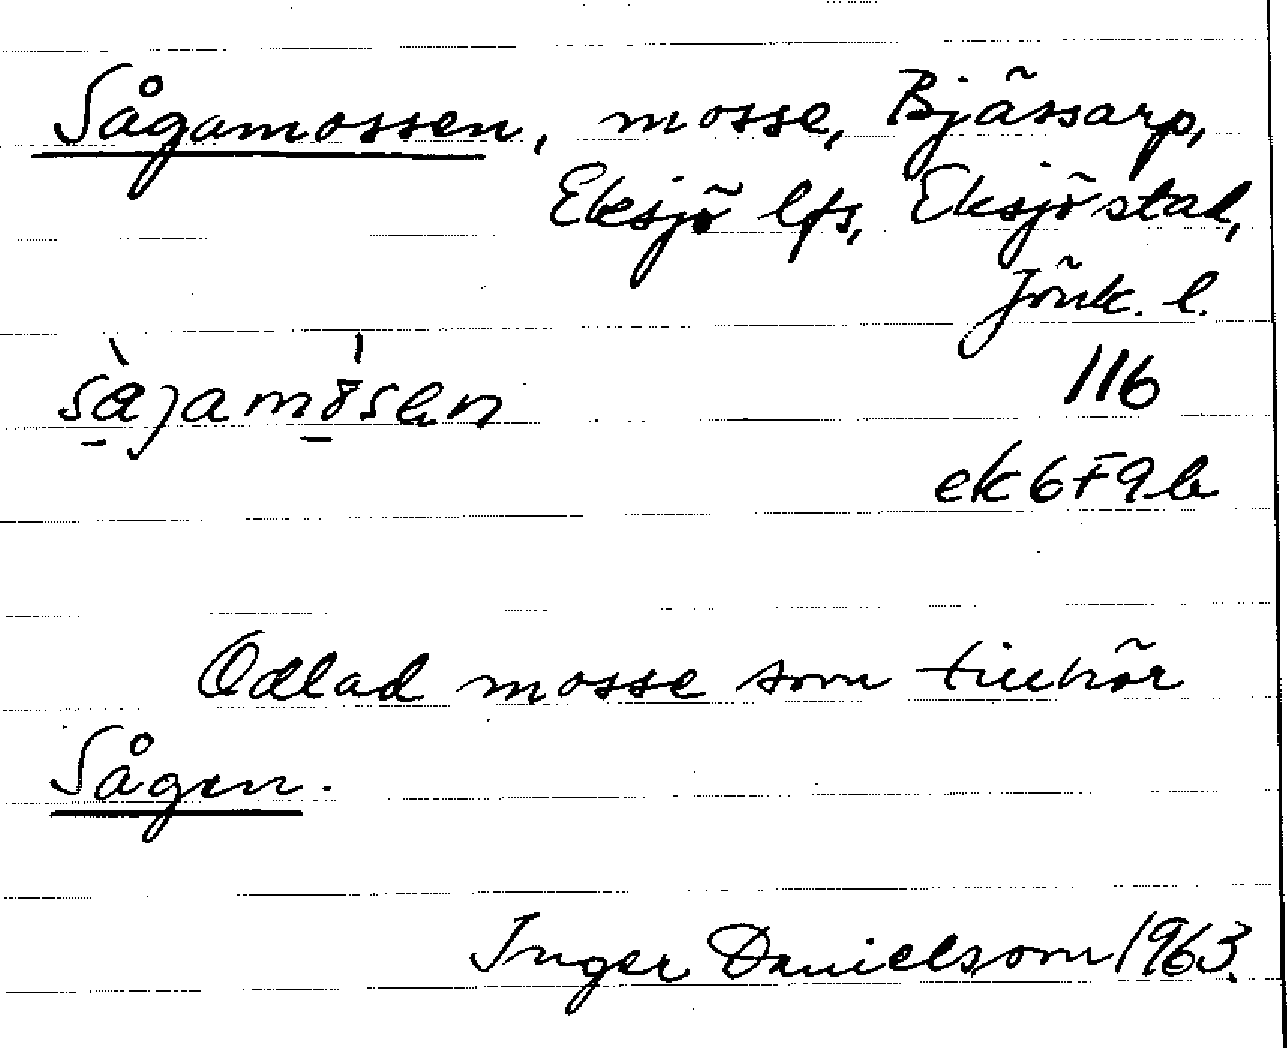 Sågamossen, mosse, Bjässarp,
Eksjö lfs, Eksjö stad,
Jönk. l.
116
ek 6F9b
Odlad mosse som tillhör
Sågen.
Inger Danielsson 1963.